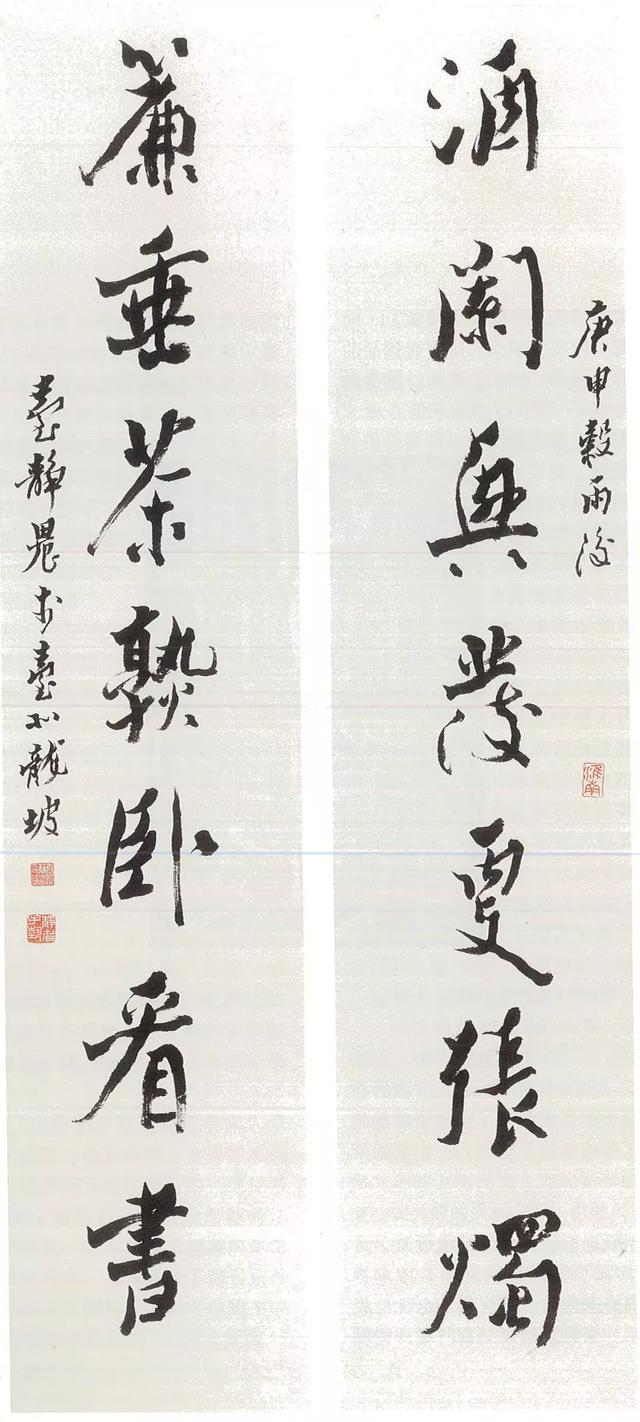 庚申穀雨後
酒闌興發更張燭
簾垂茶熟臥看書
臺靜農於臺北龍坡
淮南